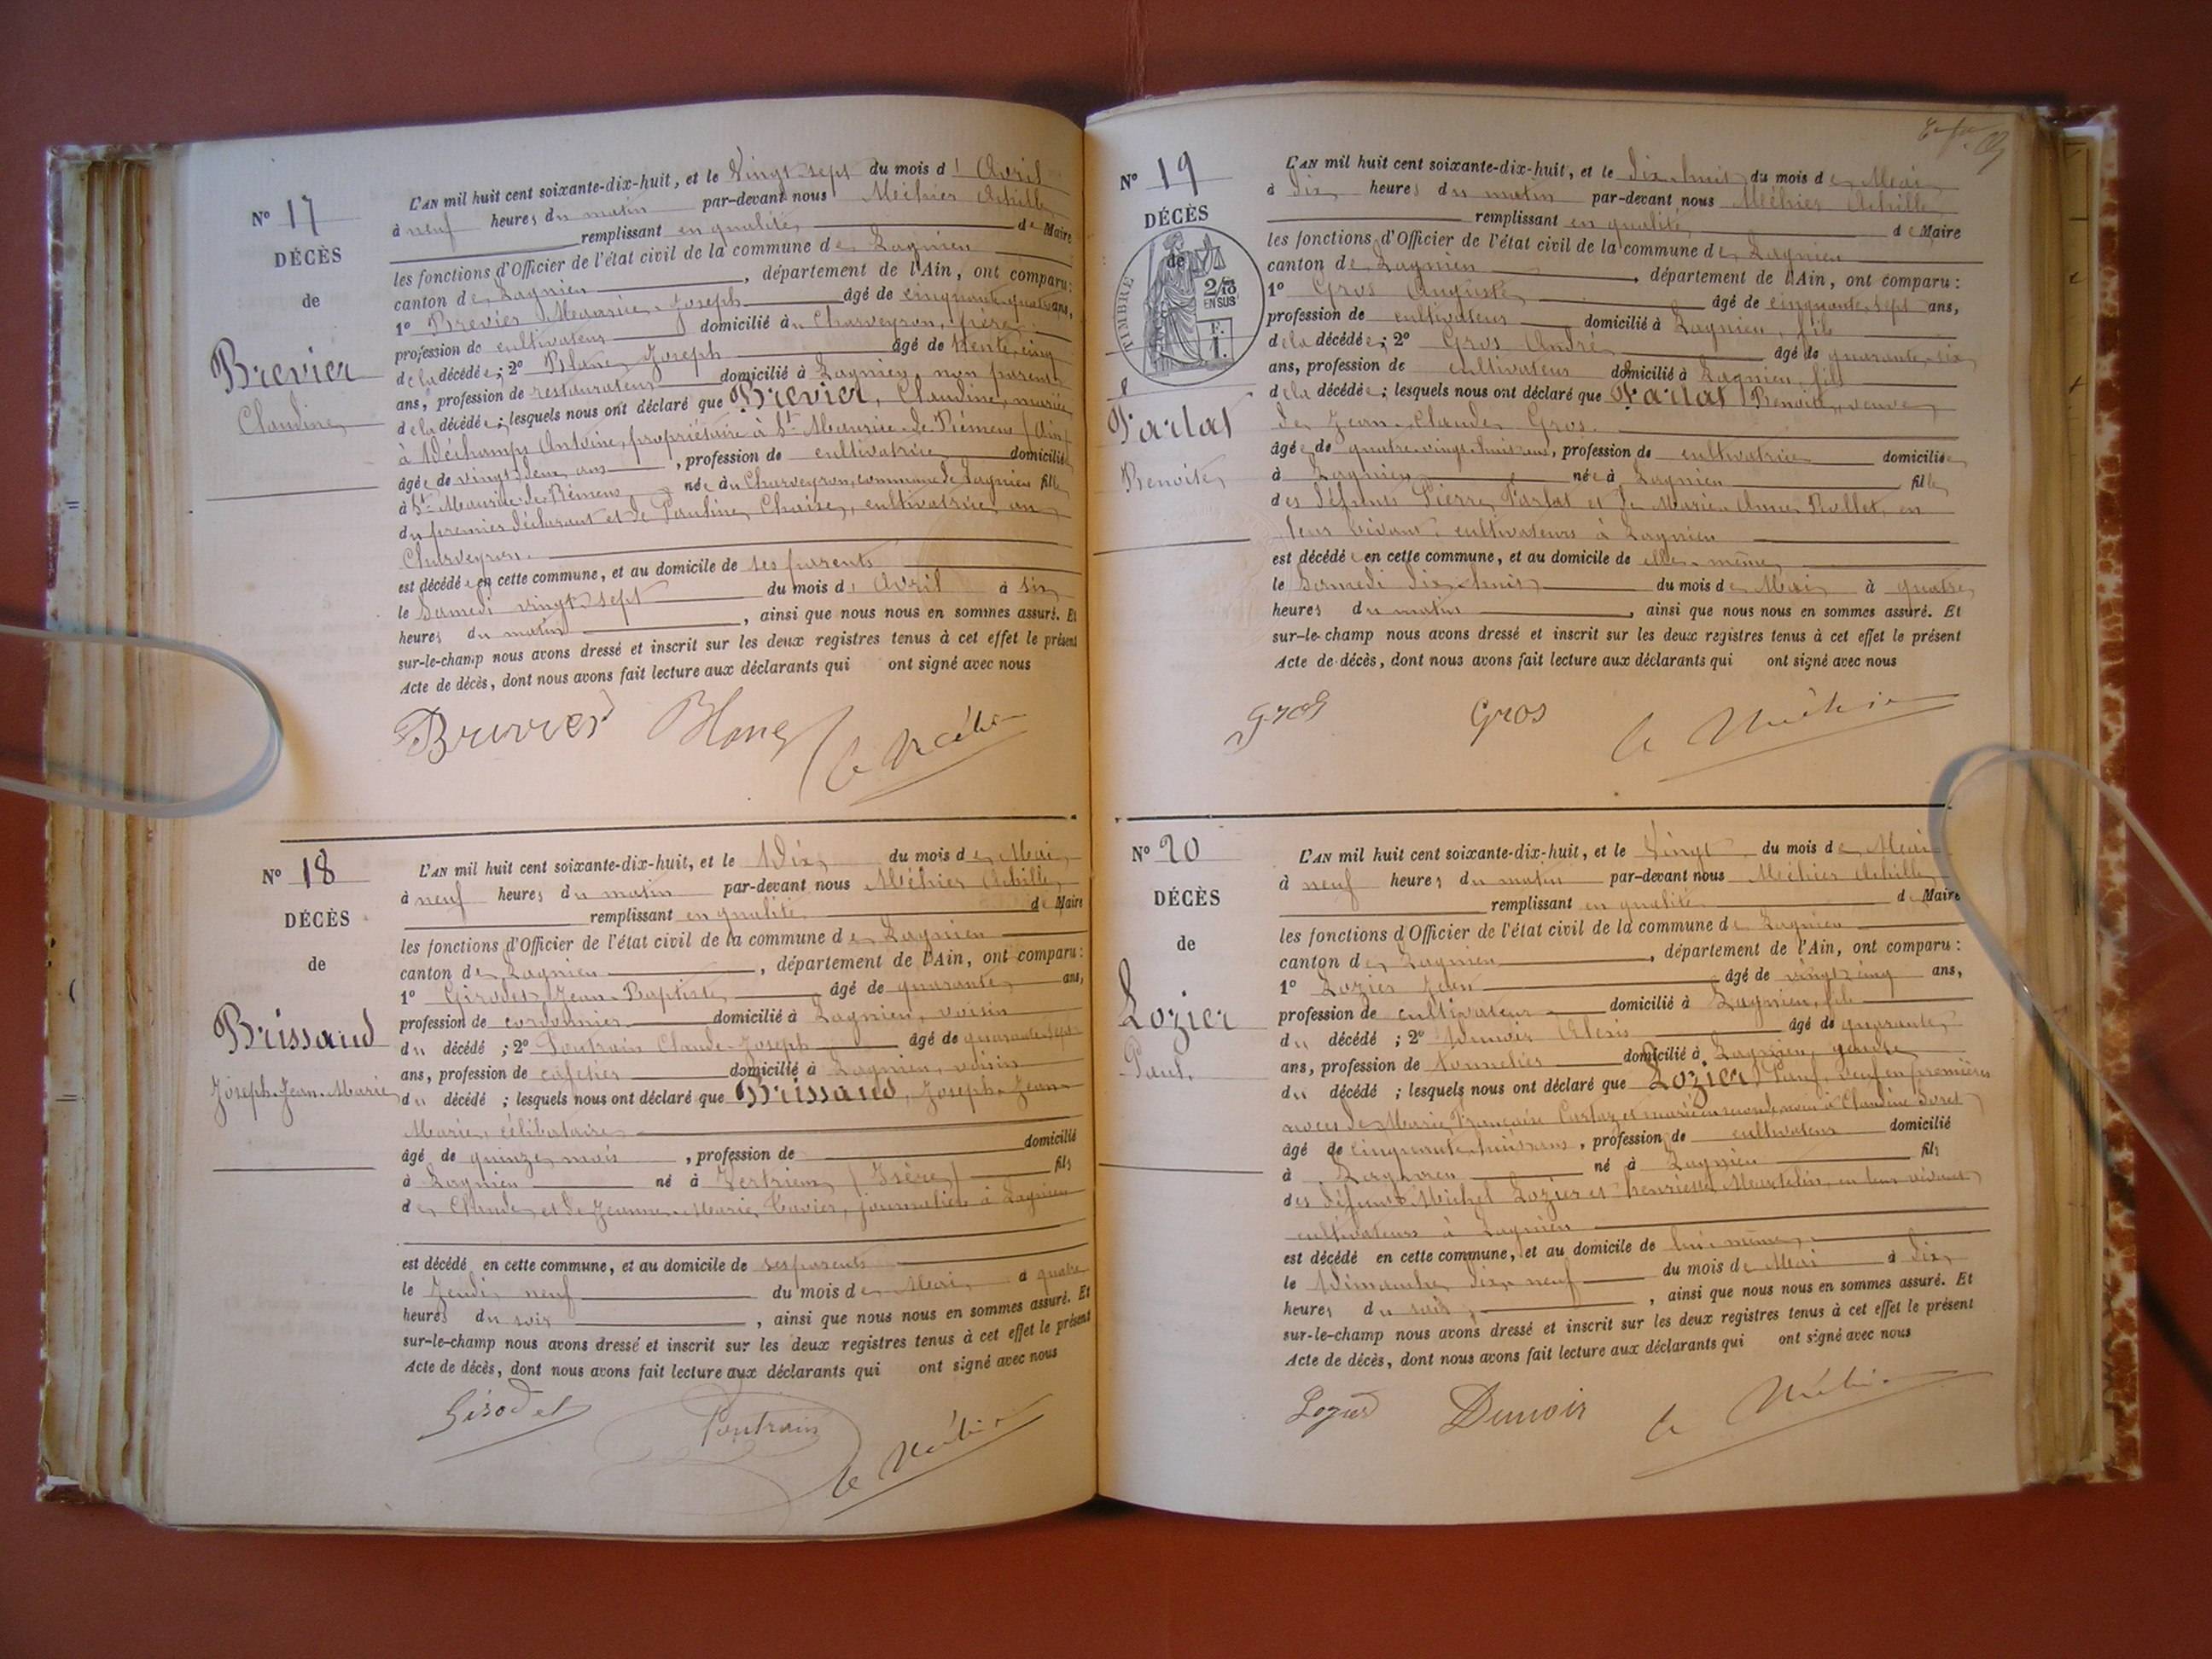 N° 17
DÉCÈS
de
Brevier
Claudine
L'AN mil huit cent soixante-dix-huit, et le Vingt-sept du mois d'Avril
à neuf heures du matin par-devant nous Méhier Achille
remplissant en qualité de Maire
les fonctions d'Officier de l'état civil de la commune de Lagnieu
canton de Lagnieu, département de l'Ain, ont comparu:
1° Brevier Maurice-Joseph âgé de cinquante-quatre ans,
profession de cultivateur domicilié à Charveyron, père
de la décédée; 2° Blanc Joseph âgé de trente-cinq
ans, profession de restaurateur domicilié à Lagnieu, non parent
de la décédée; lesquels nous ont déclaré que Brevier, Claudine, mariée
à Déchamps Antoine, propriétaire à St Maurice-de-Rémens (Ain)
âgée de vingt-deux ans, profession de cultivatrice domiciliée
à St Maurice-de-Rémens née à Charveyron, commune de Lagnieu fille
du premier déclarant et de Pauline Chaise, cultivatrice au
Charveyron.
est décédée en cette commune, et au domicile de ses parents
le Samedi vingt-sept du mois d'Avril à six
heures du matin, ainsi que nous nous en sommes assuré. Et
sur-le-champ nous avons dressé et inscrit sur les deux registres tenus à cet effet le présent
Acte de décès, dont nous avons fait lecture aux déclarants qui ont signé avec nous
Brevier Blanc A Méhier
N° 18
DÉCÈS
de
Brissaud
Joseph-Jean-Marie
L'AN mil huit cent soixante-dix-huit, et le Dix du mois de Mai
à neuf heures du matin par-devant nous Méhier Achille
remplissant en qualité de Maire
les fonctions d'Officier de l'état civil de la commune de Lagnieu
canton de Lagnieu, département de l'Ain, ont comparu:
1° Girodet Jean-Baptiste âgé de quarante ans,
profession de cordonnier domicilié à Lagnieu, voisin
du décédé; 2° Poutrain Claude-Joseph âgé de quarante-sept
ans, profession de cafetier domicilié à Lagnieu, voisin
du décédé; lesquels nous ont déclaré que Brissaud, Joseph-Jean-
Marie, célibataire
âgé de quinze mois, profession de domicilié
à Lagnieu né à Vertrieu (Isère) fils
de Claude et de Jeanne-Marie Tavier, journaliers à Lagnieu
est décédé en cette commune, et au domicile de ses parents
le Jeudi neuf du mois de Mai à quatre
heures du soir, ainsi que nous nous en sommes assuré. Et
sur-le-champ nous avons dressé et inscrit sur les deux registres tenus à cet effet le présent
Acte de décès, dont nous avons fait lecture aux déclarants qui ont signé avec nous
Girodet Poutrain A Méhier
N° 19
DÉCÈS
de
TIMBRE
2/10
EN SUS
F.
1.
Parlat
Benoite
L'AN mil huit cent soixante-dix-huit, et le Dix-huit du mois de Mai
à dix heures du matin par-devant nous Méhier Achille
remplissant en qualité de Maire
les fonctions d'Officier de l'état civil de la commune de Lagnieu
canton de Lagnieu, département de l'Ain, ont comparu:
1° Gros Auguste âgé de cinquante-sept ans,
profession de cultivateur domicilié à Lagnieu, fils
de la décédée; 2° Gros André âgé de quarante-six
ans, profession de cultivateur domicilié à Lagnieu, fils
de la décédée; lesquels nous ont déclaré que Parlat Benoite, veuve
de Jean-Claude Gros.
âgée de quatre-vingt-huit ans, profession de cultivatrice domiciliée
à Lagnieu née à Lagnieu fille
des défunts Pierre Parlat et de Marie-Anne Rollet, en
leur vivant, cultivateurs à Lagnieu
est décédée en cette commune, et au domicile de elle-même
le Samedi dix-huit du mois de Mai à quatre
heures du matin, ainsi que nous nous en sommes assuré. Et
sur-le-champ nous avons dressé et inscrit sur les deux registres tenus à cet effet le présent
Acte de décès, dont nous avons fait lecture aux déclarants qui ont signé avec nous
Gros Gros A Méhier
N° 20
DÉCÈS
de
Lozier
Paul.
L'AN mil huit cent soixante-dix-huit, et le Vingt du mois de Mai
à neuf heures du matin par-devant nous Méhier Achille
remplissant en qualité de Maire
les fonctions d'Officier de l'état civil de la commune de Lagnieu
canton de Lagnieu, département de l'Ain, ont comparu:
1° Lozier Jean âgé de vingt-cinq ans,
profession de cultivateur domicilié à Lagnieu, fils
du décédé; 2° Dunoir Alexis âgé de quarante
ans, profession de tonnelier domicilié à Lagnieu, gendre
du décédé; lesquels nous ont déclaré que Lozier Paul, veuf en premières
noces de Marie Françoise Carlaz et marié en seconde noces à Claudine Soret
âgé de cinquante-huit ans, profession de cultivateur domicilié
à Lagnieu né à Lagnieu fils
des défunts Michel Lozier et henriette Martelin, en leur vivant
cultivateurs à Lagnieu
est décédé en cette commune, et au domicile de lui-même
le Dimanche dix-neuf du mois de Mai à dix
heures du soir, ainsi que nous nous en sommes assuré. Et
sur-le-champ nous avons dressé et inscrit sur les deux registres tenus à cet effet le présent
Acte de décès, dont nous avons fait lecture aux déclarants qui ont signé avec nous
Lozier Dunoir A Méhier